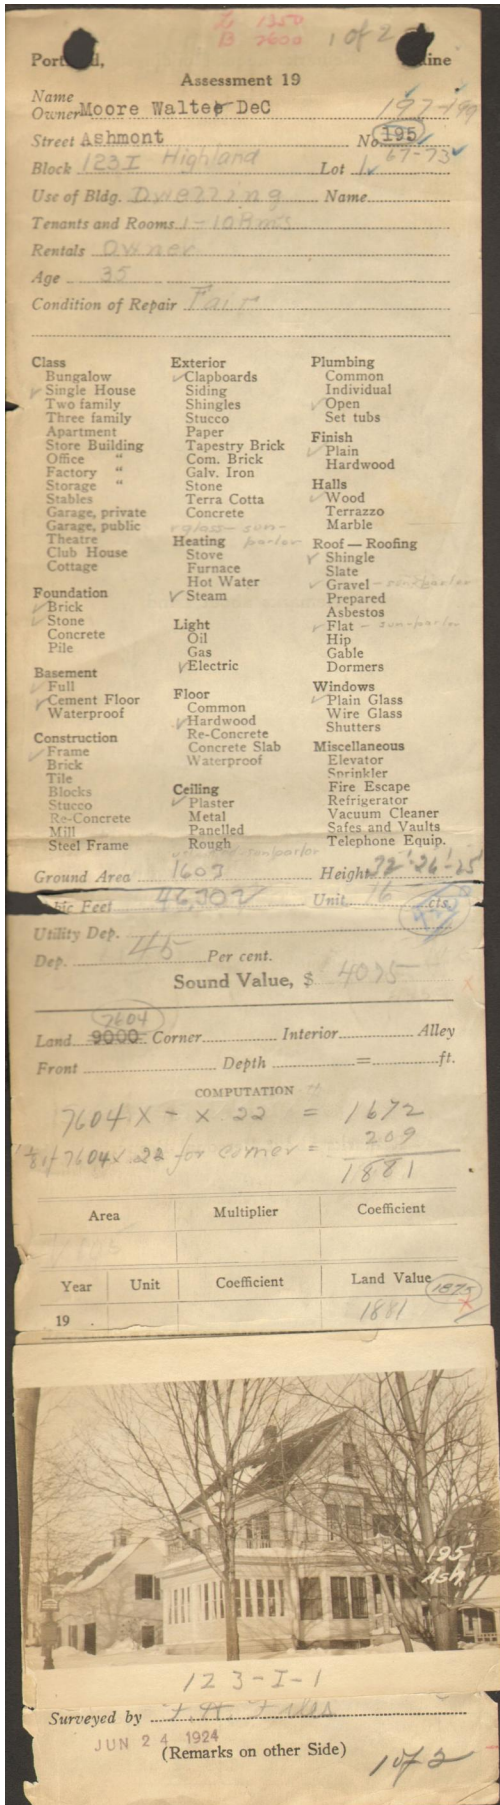 L 1350
B 7600
1 of 2
Portland, Maine
Assessment 19
Name
Owner Moore Walter DeC 197-199
Street Ashmont No. 195
67-73
Block 123 I Highland Lot 1
Use of Bldg. Dwelling Name
Tenants and Rooms 1-10 Rms
Rentals Owner
Age 35
Condition of Repair Fair
Class
Bungalow
✓ Single House
Two family
Three family
Apartment
Store Building
Office "
Factory "
Storage "
Stables
Garage, private
Garage, public
Theatre
Club House
Cottage
Foundation
✓ Brick
✓ Stone
Concrete
Pile
Basement
✓ Full
✓ Cement Floor
Waterproof
Construction
✓ Frame
Brick
Tile
Blocks
Stucco
Re-Concrete
Mill
Steel Frame
Exterior
✓ Clapboards
Siding
Shingles
Stucco
Paper
Tapestry Brick
Com. Brick
Galv. Iron
Stone
Terra Cotta
Concrete
✓ glass - sun-parlor
Heating
Stove
Furnace
Hot Water
✓ Steam
Light
Oil
Gas
✓ Electric
Floor
Common
✓ Hardwood
Re-Concrete
Concrete Slab
Waterproof
Ceiling
✓ Plaster
Metal
Panelled
Rough
sunparlor
Plumbing
Common
Individual
✓ Open
Set tubs
Finish
✓ Plain
Hardwood
Halls
✓ Wood
Terrazzo
Marble
Roof — Roofing
✓ Shingle
Slate
✓ Gravel - sun parlor
Prepared
Asbestos
✓ Flat - sun-parlor
Hip
Gable
Dormers
Windows
✓ Plain Glass
Wire Glass
Shutters
Miscellaneous
Elevator
Sprinkler
Fire Escape
Refrigerator
Vacuum Cleaner
Safes and Vaults
Telephone Equip.
Ground Area 1603 Height
Cubic Feet Unit 16 cts.
Utility Dep.
Dep. 45 Per cent.
Sound Value, $ 4075
7604
Land 9000 Corner Interior Alley
Front Depth = ft.
COMPUTATION
7604 X - X .22 = 1672
1/8 of 7604 X .22 for corner = 209
1881
Area Multiplier Coefficient
Year Unit Coefficient Land Value 1875
19 1881
195
Ash.
123-I-1
Surveyed by
JUN 24 1924
(Remarks on other Side)
1 of 2